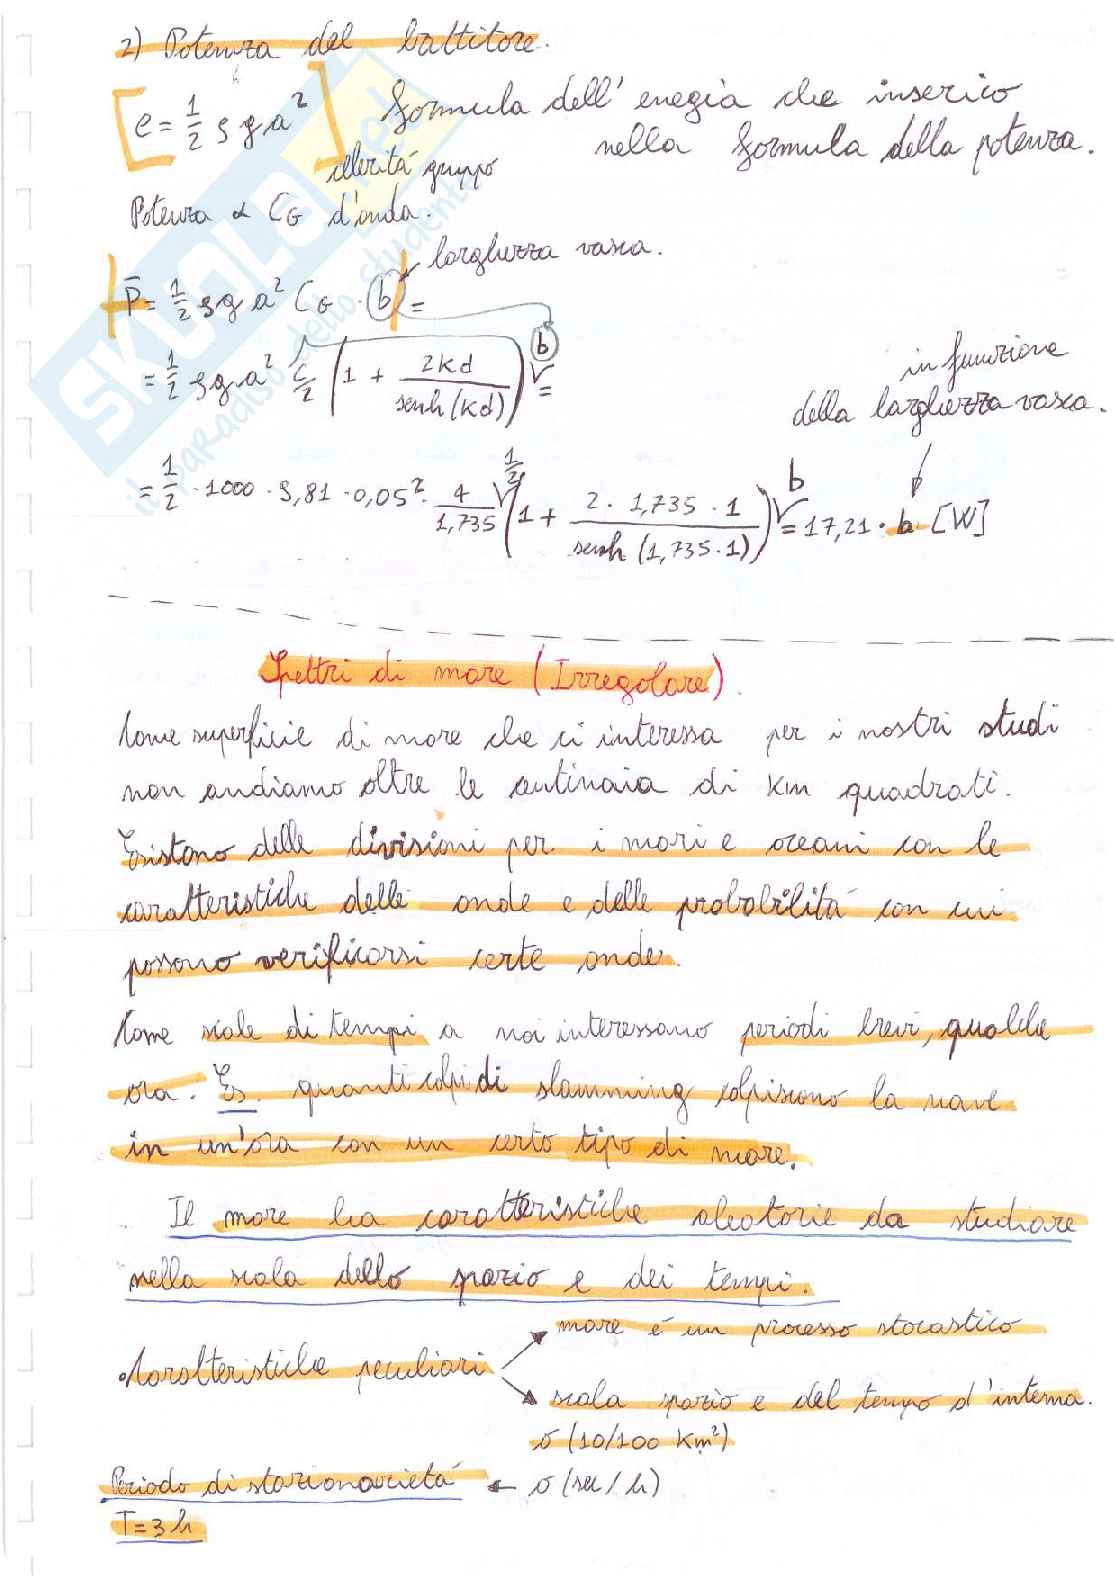 2) Potenza del battitore.
[e = 1/2 ρ g a²] formula dell'enegia che inserico
nella formula della potenza.
celerità gruppo
Potenza α CG d'onda.
larghezza vasca.
P̄ = 1/2 ρ g a² CG · b =
= 1/2 ρ g a² c/2 (1 + 2Kd / senh(Kd)) b =
in funzione
della larghezza vasca.
= 1/2 · 1000 · 9,81 · 0,05² · 4/1,735 1/2 (1 + 2 · 1,735 · 1 / senh (1,735 · 1)) b = 17,21 · b [W]
Spettri di mare (Irregolare).
Come superficie di mare che ci interessa per i nostri studi
non andiamo oltre le centinaia di Km quadrati.
Esistono delle divisioni per i mari e oceani con le
caratteristiche delle onde e delle probabilitá con cui
possono verificarsi certe onde.
Come scale di tempi a noi interessano periodi brevi, qualche
ora. Es. quanti colpi di slamming colpiscono la nave
in un'ora con un certo tipo di mare.
Il mare ha caratteristiche aleatorie da studiare
nella scala dello spazio e dei tempi.
mare é un processo stocastico
• Caratteristiche peculiari
scala spazio e del tempo d'interna.
σ (10/100 Km²)
Periodo di stazionarietá ← σ (sec / h)
T = 3 h
SKUOLA.net
il paradiso dello studente